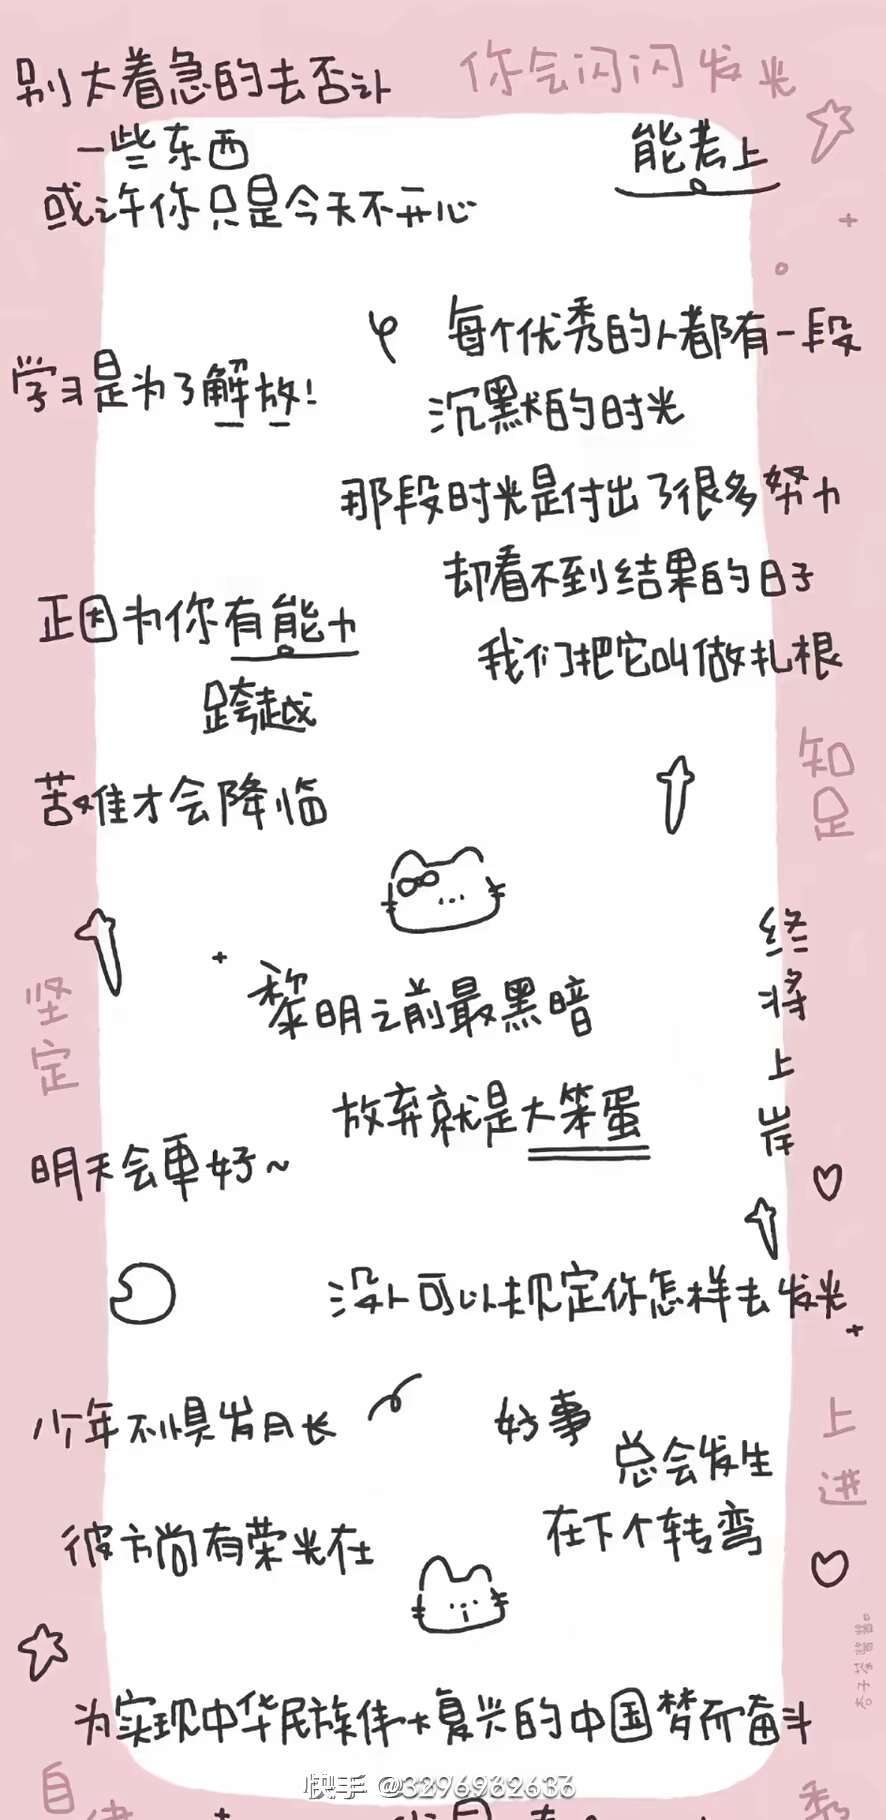 别太着急的去否认
一些东西
或许你只是今天不开心
你会闪闪发光
能考上
学习是为了解放!
每个优秀的人都有一段
沉默的时光
那段时光是付出了很多努力
却看不到结果的日子
我们把它叫做扎根
正因为你有能力
跨越
苦难才会降临
知足
坚定
终将上岸
黎明之前最黑暗
放弃就是大笨蛋
明天会更好~
没人可以规定你怎样去发光
少年不惧岁月长
彼方尚有荣光在
好事
总会发生
在下个转弯
上进
为实现中华民族伟大复兴的中国梦而奋斗
快手 @3296982636
自律